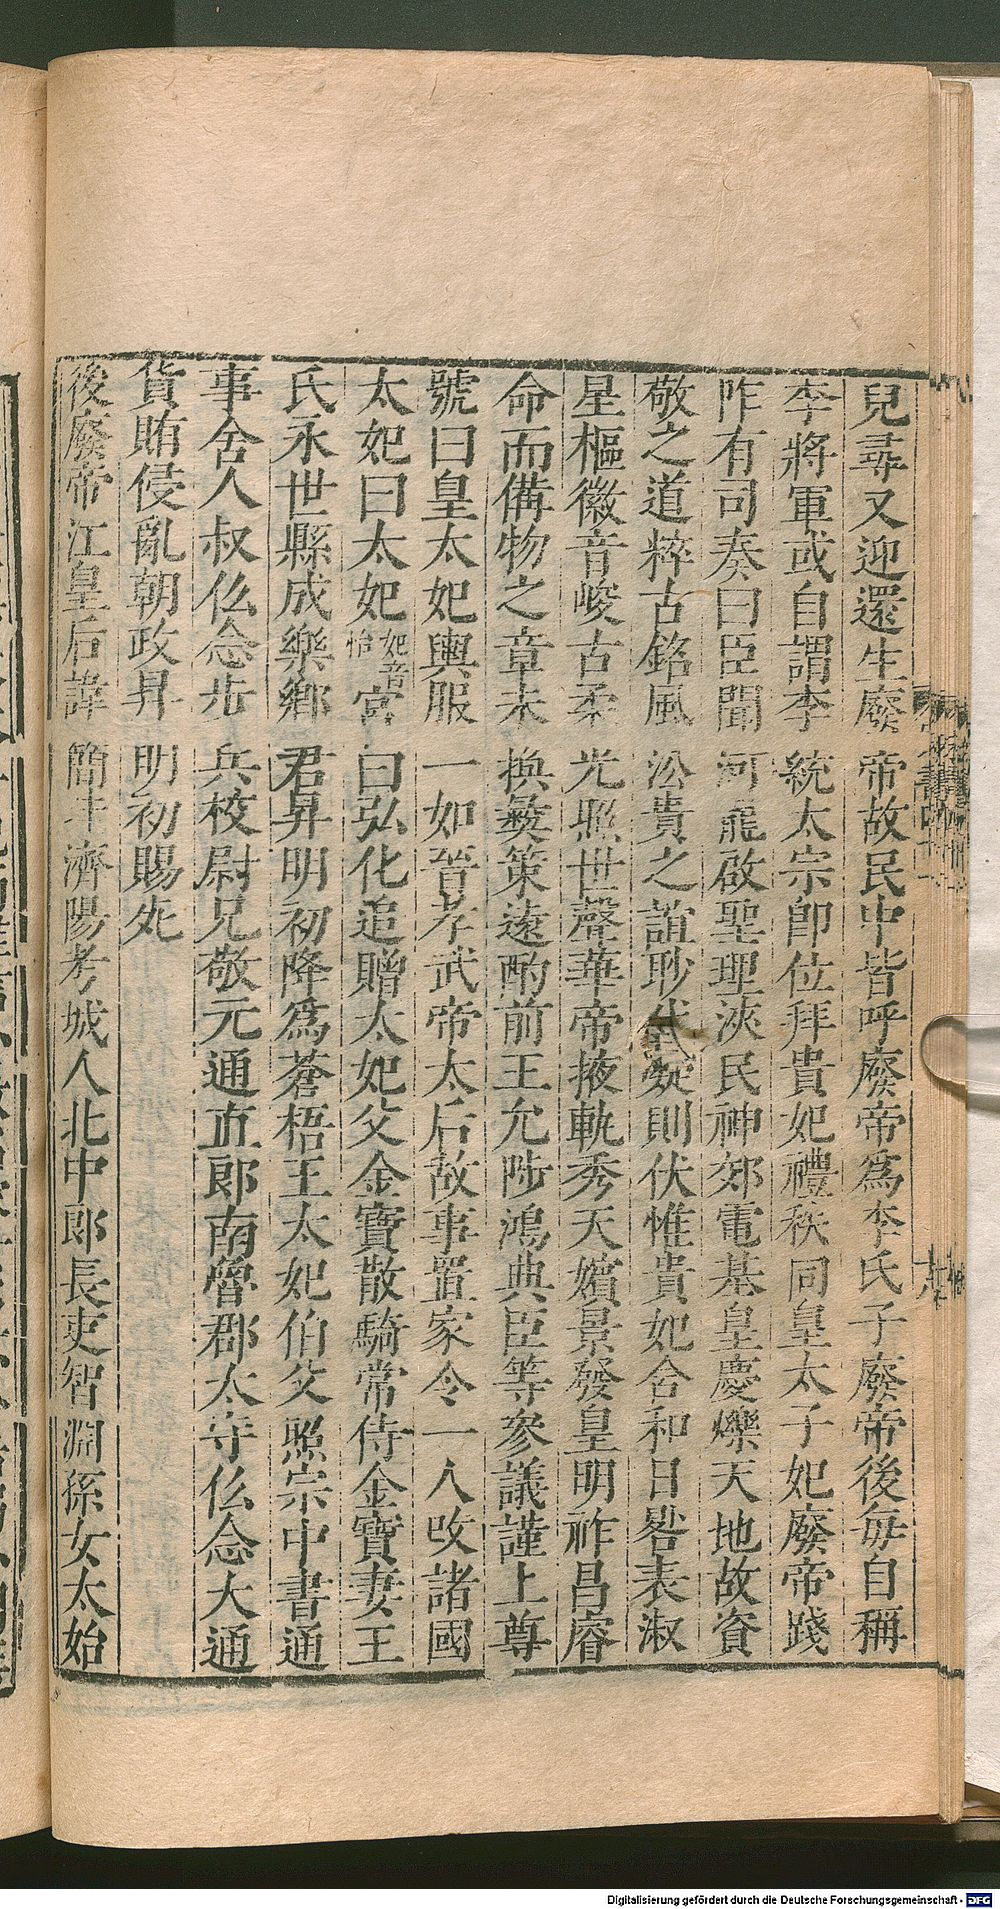 兒尋又迎還生廢帝故民中皆呼廢帝爲李氏子廢帝後每自稱
李將軍或自謂李統太宗卽位拜貴妃禮秩同皇太子妃廢帝踐
阼有司奏曰臣聞河龍啟聖理浹民神郊電基皇慶爍天地故資
敬之道粹古銘風沿貴之誼眇代凝則伏惟貴妃含和日晷表淑
星樞徽音峻古柔光照世聲華帝掖軌秀天嬪景發皇明祚昌睿
命而備物之章未換彜策遠酌前王允陟鴻典臣等參議謹上尊
號曰皇太妃輿服一如晉孝武帝太后故事置家令一人改諸國
太妃曰太妃妃音怡宮曰弘化追贈太妃父金寶散騎常侍金寶妻王
氏永世縣成樂鄉君昇明初降爲蒼梧王太妃伯父照宗中書通
事舍人叔佛念步兵校尉兄敬元通直郎南魯郡太守佛念大通
貨賄侵亂朝政昇明初賜死
後廢帝江皇后諱簡圭濟陽考城人北中郎長史智淵孫女太始
Digitalisierung gefördert durch die Deutsche Forschungsgemeinschaft - DFG